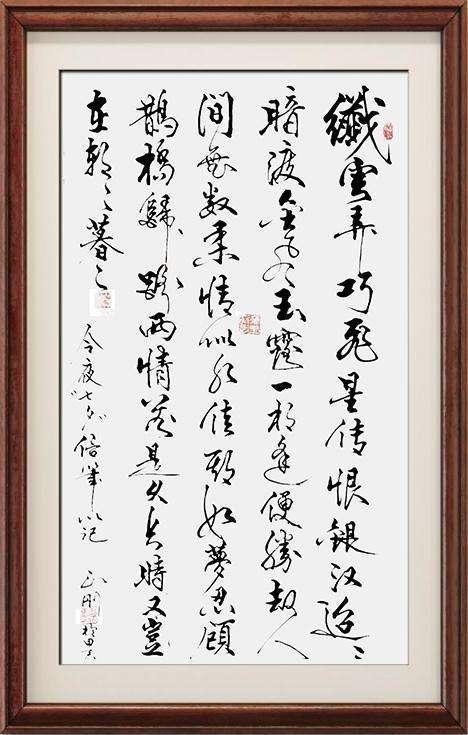 纖雲弄巧飛星传恨銀汉迢〻
暗渡金風玉露一相逢便勝却人
间無数柔情似水佳期如夢忍顧
鵲橋歸路两情若是久長時又豈
在朝〻暮〻
今夜七夕 筆以记